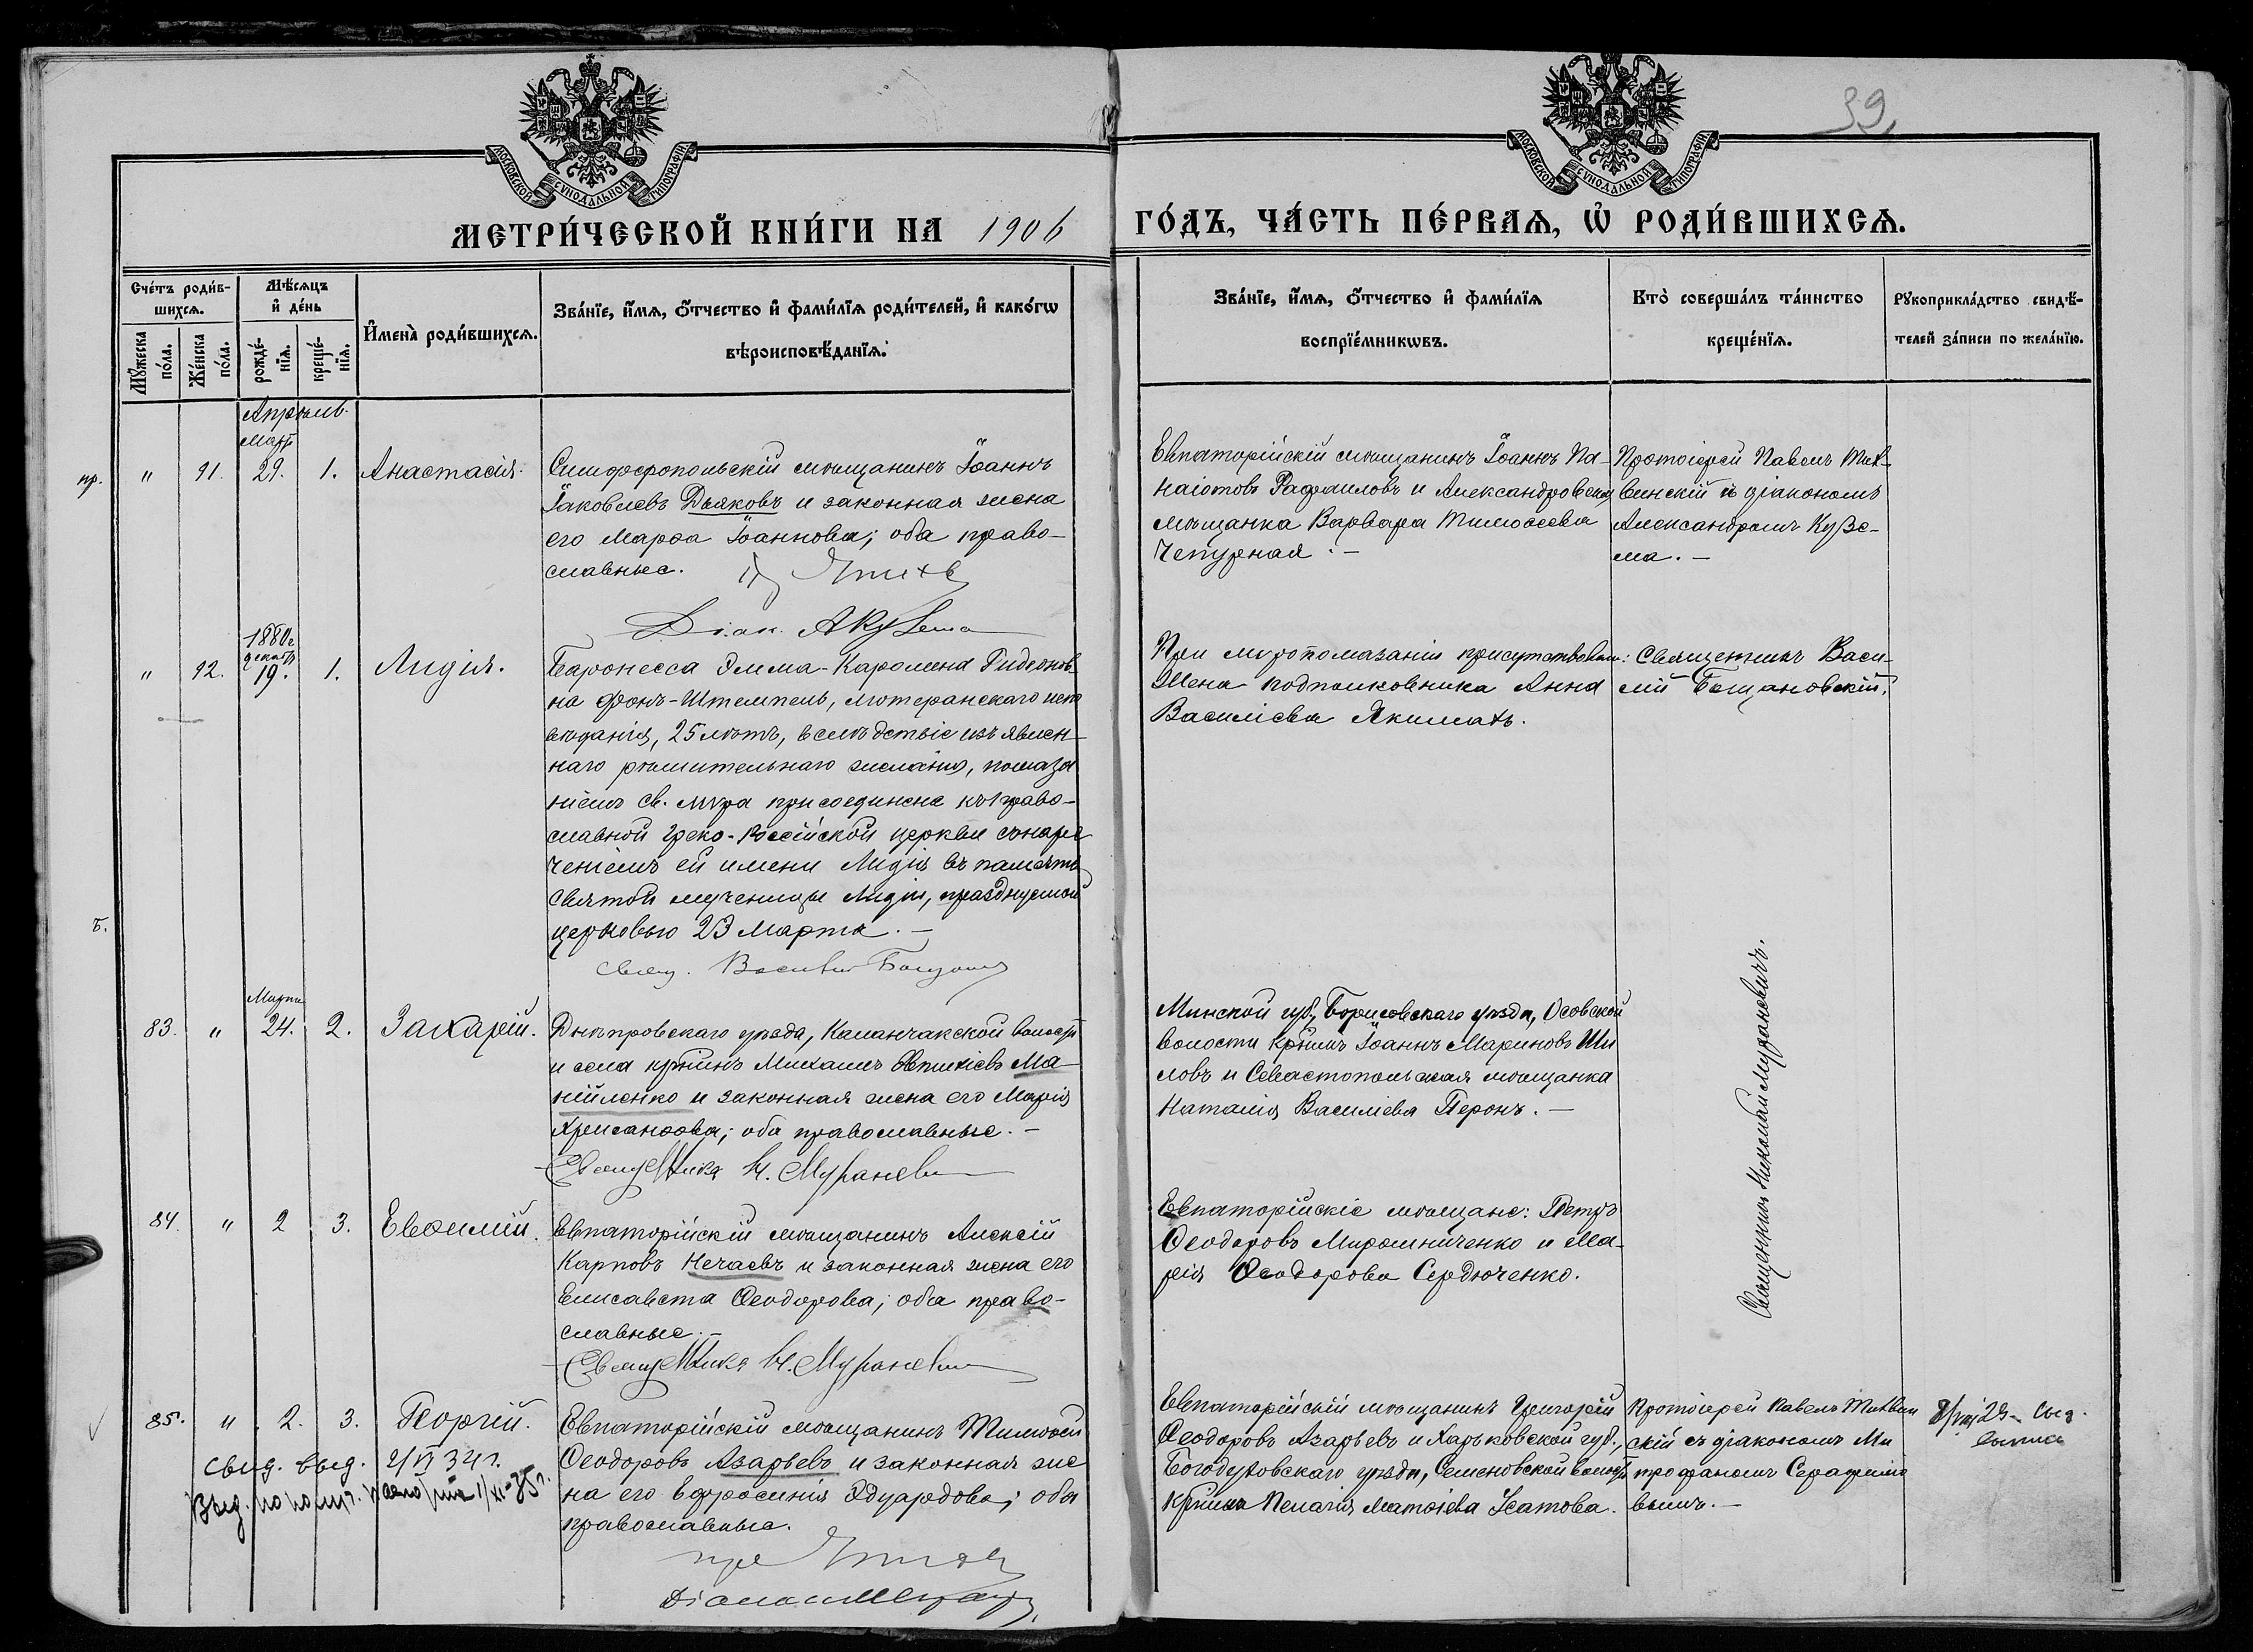 39
МОСКОВСКОЙ СѴНОДАЛЬНОЙ ТИПОГРАФІИ
МОСКОВСКОЙ СѴНОДАЛЬНОЙ ТИПОГРАФІИ
МЕТРИ́ЧЕСКОЙ КНИ́ГИ НА 1906
ГО́ДЪ, ЧА́СТЬ ПЕ́РВАѦ, Ѡ҆ РОДИ́ВШИХСѦ.
Сче́тъ роди́в-
шихсѧ.
Мꙋ́жеска
по́ла.
Же́нска
по́ла.
Мѣ́сѧцъ
и҆ де́нь
рожде́-
нїѧ.
креще́-
нїѧ.
И҆мена̀ роди́вшихсѧ.
Зва́нїе, и҆́мѧ, ѻ҆́тчество и҆ фами́лїѧ роди́телей, и҆ како́гѡ
вѣроисповѣ́данїѧ.
Зва́нїе, и҆́мѧ, ѻ҆́тчество и҆ фами́лїѧ
воспрїе́мникѡвъ.
Кто̀ соверша́лъ та́инство
креще́нїѧ.
Рꙋкоприкла́дство свидѣ́-
телей за́писи по жела́нїю.
Апрѣль.
Мартъ
пр. " 91. 29. 1. Анастасія.
Симферопольскій мѣщанинъ Іоаннъ
Іаковлевъ Дьяковъ и законная жена
его Марѳа Іоаннова; оба право-
славные.
Діак. А Кузема
Евпаторійскій мѣщанинъ Іоаннъ Па-
наіотовъ Рафаиловъ и Александровская
мѣщанка Варвара Тимоѳеева
Чепурная. —
Протоіерей Павелъ Тих-
винскій съ діакономъ
Александромъ Кузе-
ма. —
1880 г.
декабр.
" 92. 19. 1. Лидія.
Баронесса Эмма-Каролина Гидеонов
на фонъ-Штемпель, лютеранскаго испо
вѣданія, 25 лѣтъ, вслѣдствіе изъявлен-
наго рѣшительнаго желанія, помаза
ніемъ св. мѵра присоединена къ право-
славной Греко-Россійской церкви съ наре
ченіемъ ей имени Лидія въ память
святой мученицы Лидіи, празднуемой
церковью 23 Марта. —
Свящ. Василій
При мѵропомазаніи присутствовали:
Жена подполковника Анна
Василіева Якимахъ.
Священникъ Васи-
лій Бощановскій.
Б.
Марта
83. " 24. 2. Захарій.
Днѣпровскаго уѣзда, Каланчакской волости
и села кр-нинъ Михаилъ Евтихіевъ Ма-
нійленко и законная жена его Марія
Хрисанѳова; оба православные. —
Священника Н. Мураневи
Минской губ., Борисовскаго уѣзда, Осовской
волости кр-нинъ Іоаннъ Мариновъ Ши
ловъ и Севастопольская мѣщанка
Наталія Василіева Перонъ. —
Священникъ Николай Мурановичъ.
84. " 2 3. Евѳимій.
Евпаторійскій мѣщанинъ Алексій
Карповъ Нечаевъ и законная жена его
Елисавета Ѳеодорова; оба право-
славные. —
Священника Н. Мураневи
Евпаторійскіе мѣщане: Петръ
Ѳеодоровъ Мирошниченко и Ма-
рія Ѳеодорова Сердюченко.
85. " 2. 3. Георгій.
Евпаторійскій мѣщанинъ Тимоѳей
Ѳеодоровъ Азарьевъ и законная же
на его Евфросинія Эдуардова; оба
православные.
свид. выд. 2/VI 34 г.
Выд. по получ. паспорта 1/XI-35 г.
Евпаторійскій мѣщанинъ Григорій
Ѳеодоровъ Азарьевъ и Харьковской губ.,
Богодуховскаго уѣзда, Семеновской волости
кр-нка Пелагія Матѳіева Усатова.
Протоіерей Павелъ Тихвин
скій съ діакономъ Ми
трофаномъ Серафимо
вымъ. —